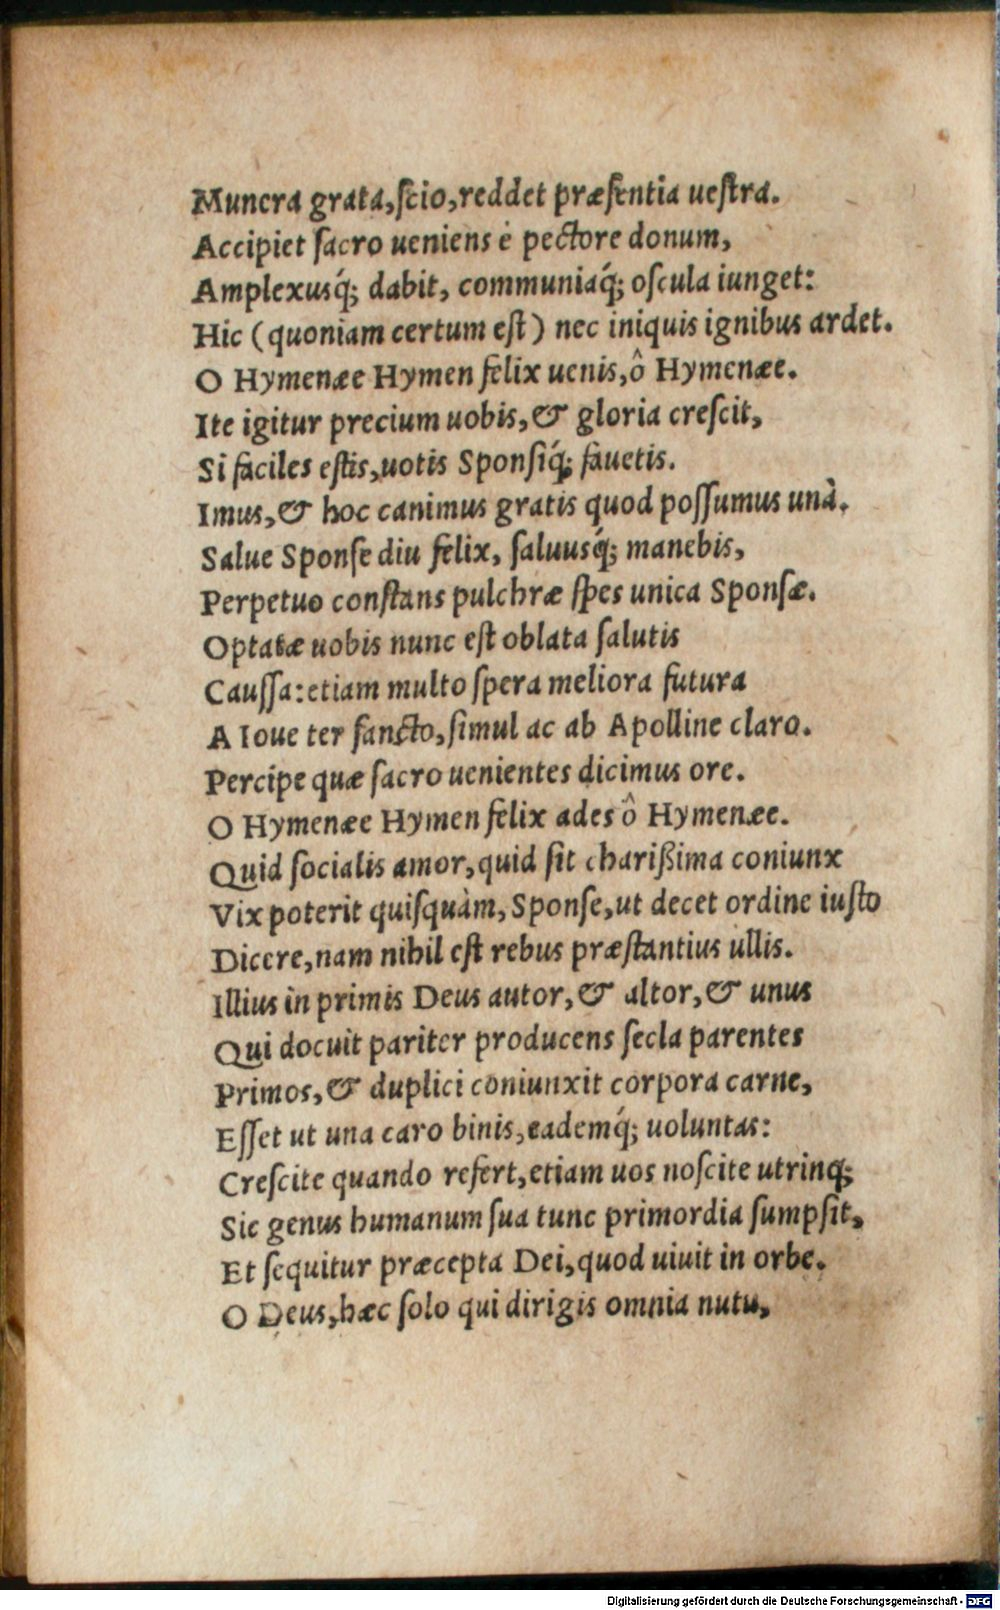 Munera grata,ſcio,reddet præſentia ueſtra.
Accipiet ſacro ueniens è pectore donum,
Amplexusq́; dabit, communiaq́; oſcula iunget:
Hic (quoniam certum eſt) nec iniquis ignibus ardet.
O Hymenæe Hymen felix uenis,ô Hymenæe.
Ite igitur precium uobis,& gloria creſcit,
Si faciles eſtis,uotis Sponſiq́; fauetis.
Imus,& hoc canimus gratis quod poſſumus unà.
Salue Sponſe diu felix, ſaluusq́; manebis,
Perpetuo conſtans pulchræ ſpes unica Sponſæ.
Optatæ uobis nunc eſt oblata ſalutis
Cauſſa:etiam multo ſpera meliora futura
A Ioue ter ſancto,ſimul ac ab Apolline claro.
Percipe quæ ſacro uenientes dicimus ore.
O Hymenæe Hymen felix ades ô Hymenæe.
Quid ſocialis amor,quid ſit charißima coniunx
Vix poterit quiſquàm,Sponſe,ut decet ordine iuſto
Dicere,nam nihil eſt rebus præſtantius ullis.
Illius in primis Deus autor,& altor,& unus
Qui docuit pariter producens ſecla parentes
Primos,& duplici coniunxit corpora carne,
Eſſet ut una caro binis,eademq́; uoluntas:
Creſcite quando refert,etiam uos noſcite utrinq;
Sic genus humanum ſua tunc primordia ſumpſit,
Et ſequitur præcepta Dei,quod uiuit in orbe.
O Deus,hæc ſolo qui dirigis omnia nutu,
Digitalisierung gefördert durch die Deutsche Forschungsgemeinschaft - DFG